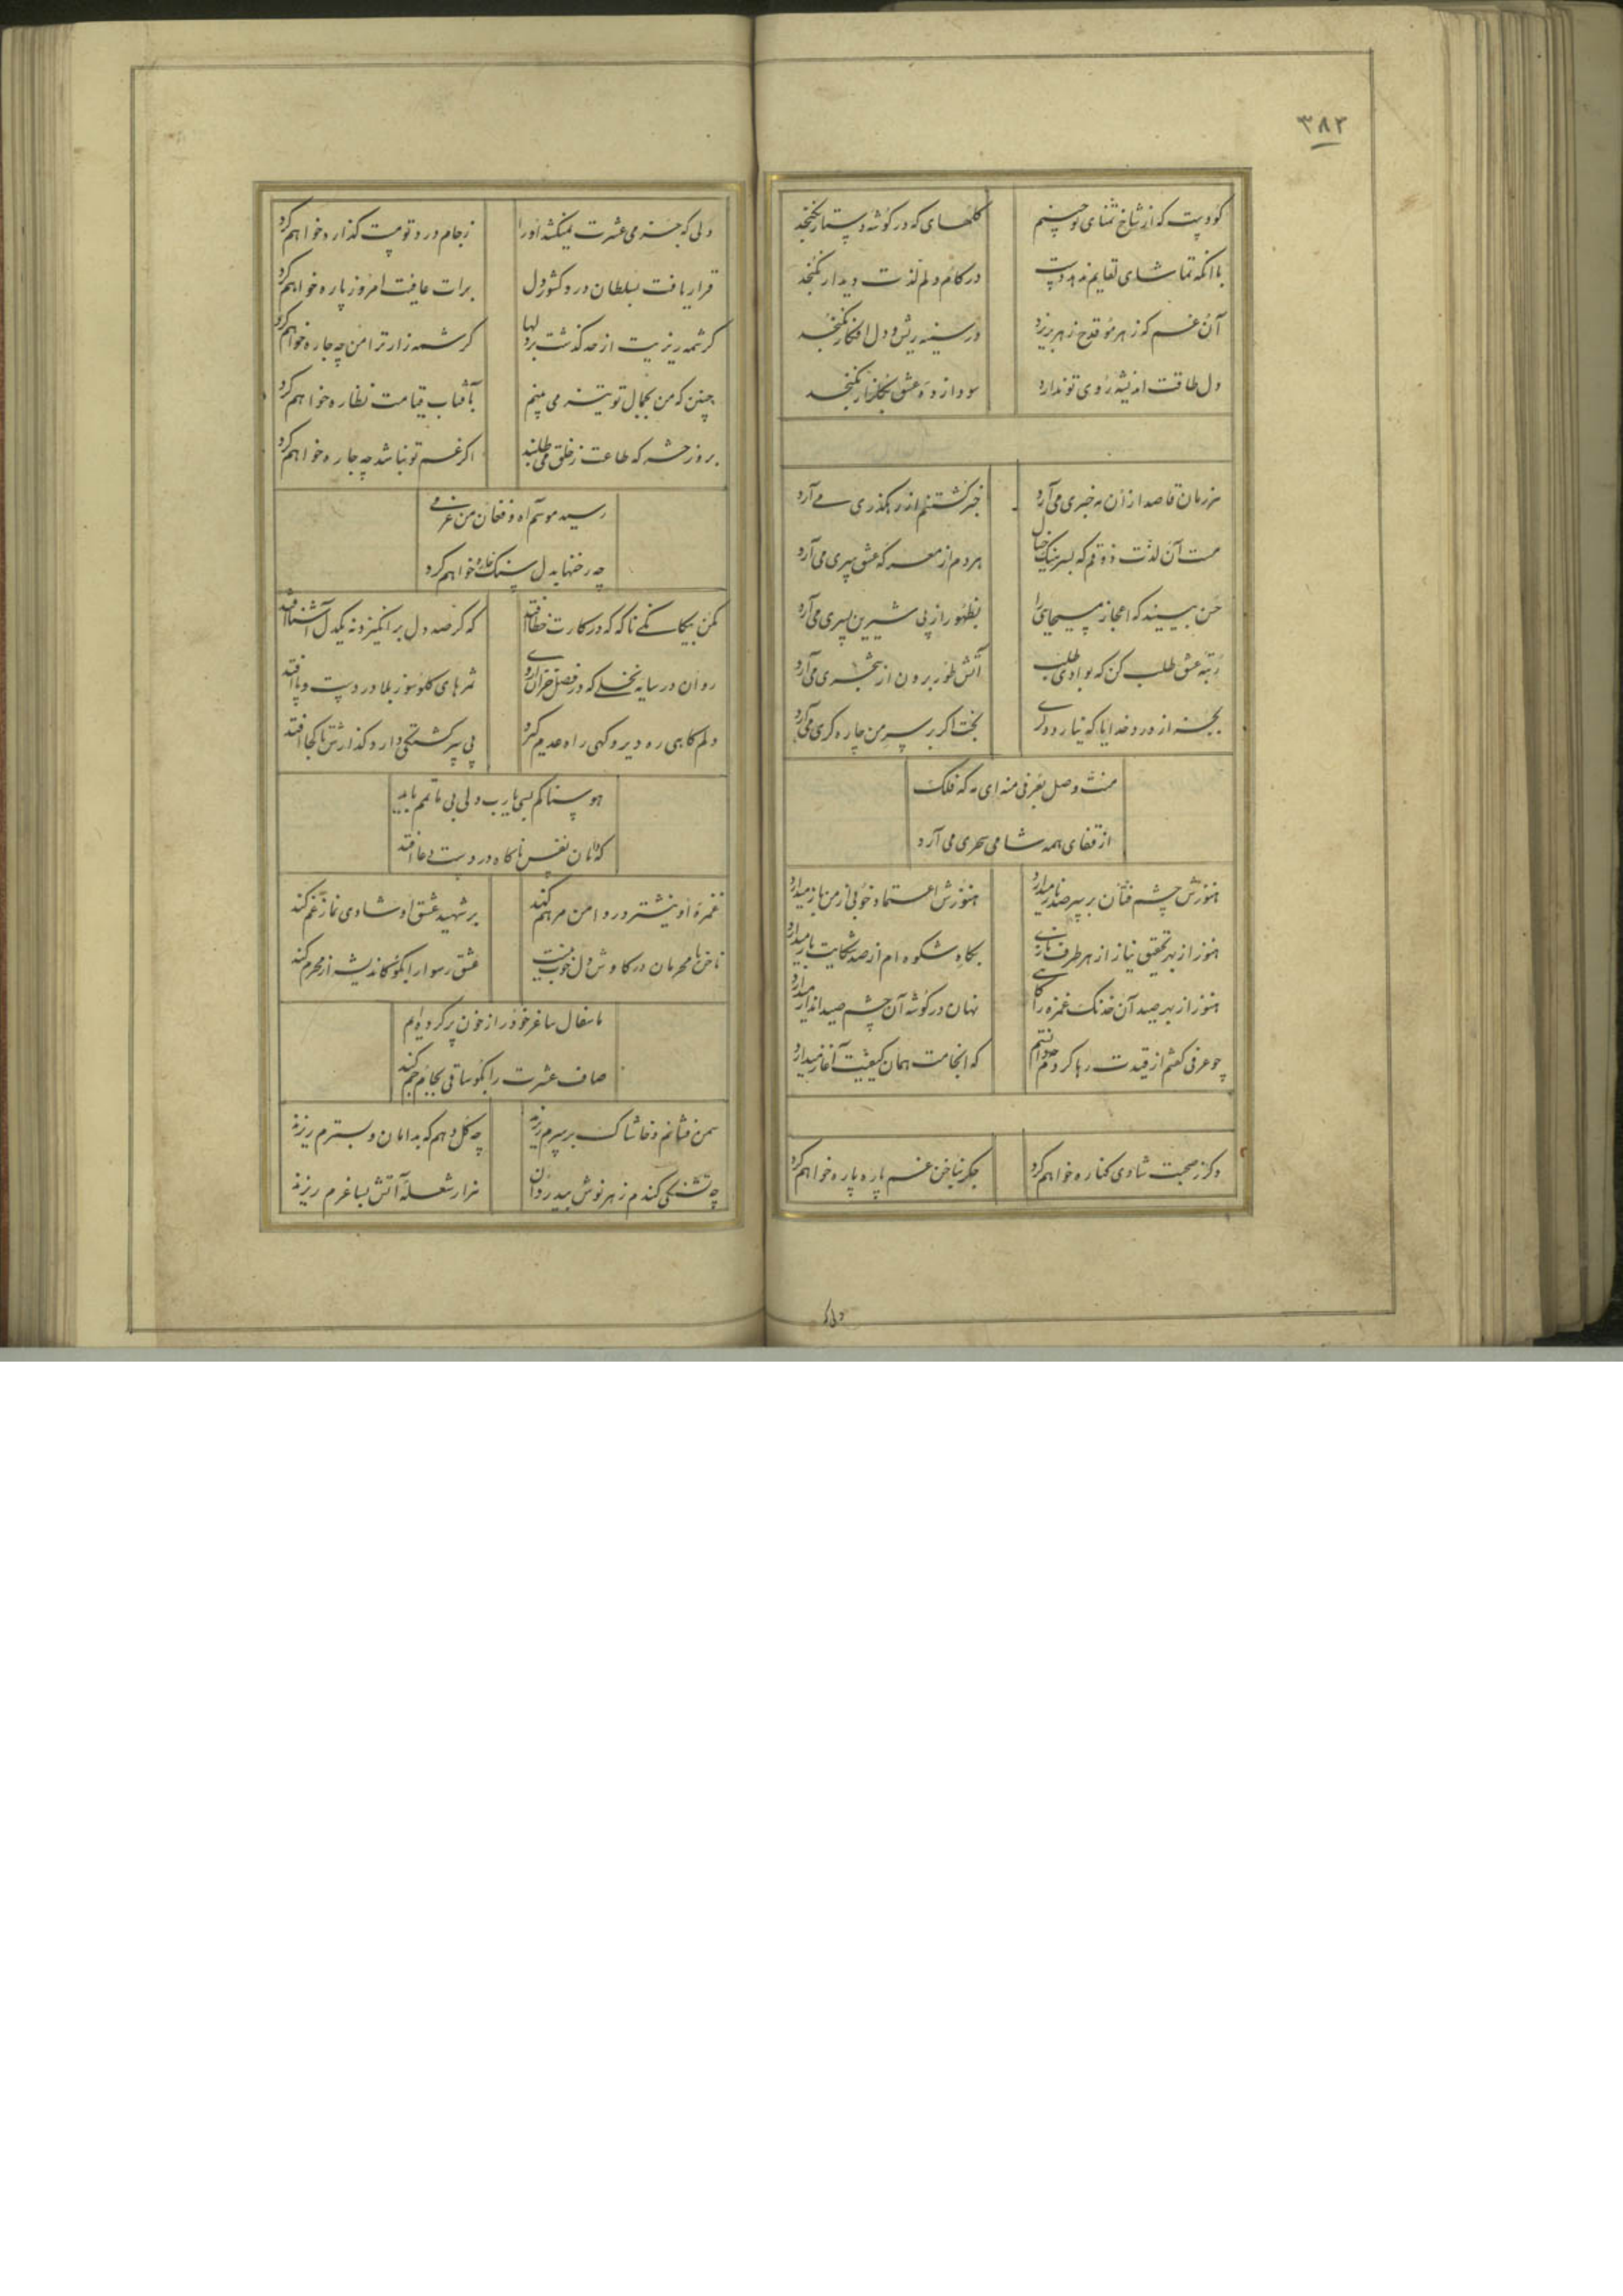 ٣٨٢
کو دست که از شاخ تمنای تو چینم گلهای که در گوشه دستار نگنجد
باآنکه تماشای لقایم ندهد دست در کام دلم لذت دیدار نگنجد
آن غم که ز هر مو قدح زهر بریزد در سینه ریش و دل افکار نگنجد
دل طاقت اندیشه روی تو ندارد سودازده عشق بگلزار نگنجد
هر زمان قاصد ازان مه خبری می آرد خبر کشتنم از رهگذری می آرد
مست آن لذت ذوقم که بسر نیک خیال هر دم از معرکه عشق سری می آرد
حسن بینید که اعجاز مسیحای را بظهور از پی شیرین پسری می آرد
رتبه عشق طلب کن که بوادی طلب آتش طور برون از شجری می آرد
بجز از درد خدایا که نیارد دگری بخت اگر بر سر من چاره گری می آرد
منت وصل بعرفی منه ای مه که فلک
از قفای همه شامی سحری می آرد
هنوزش چشم فتان بر سر صد ناز میدارد هنوزش اعتماد خوبی از من باز میدارد
هنوز از بهر تحقیق نیاز از هر طرف نازی بکاه شکوه ام از صد شکایت باز میدارد
هنوز از بهر صید آن خدنگ غمزه را گاهی نهان در گوشه آن چشم صید انداز میدارد
چو عرفی گفتم از قیدت رها گردم ندانستم که انجامت همان کیفیت آغاز میدارد
دگر ز صحبت شادی کناره خواهم کرد جگر بناخن غم پاره پاره خواهم کرد
دلی که
دلی که جز می عشرت نمیکشد او را ز جام درد تو مست گذاره خواهم کرد
قرار یافت بسلطان درد کشور دل برات عافیت امروز پاره خواهم کرد
کرشمه ریزیت از حد گذشت بر دلها کرشمه زار ترا من چه چاره خواهم کرد
چنین که من بجمال تو تیز می بینم بآفتاب قیامت نظاره خواهم کرد
بروز حشر که طاعت ز خلق می طلبند اگر غم تو نباشد چه چاره خواهم کرد
رسید موسم آه و فغان من عرفی
چه رخنها بدل سنگ خاره خواهم کرد
مکن بیگانگی ناگه که در کارت خطا افتد که گر صد دل برانگیزد نه یکدل آشنا افتد
روان در سایه نخلی که در فصل خزان اروی ثمرهای گلوسوز بلا در دست و پا افتد
دلم گاهی ره دیر و گهی راه حرم گیرد پی سرگشتگی دارد گذارش تا کجا افتد
هوسناکم بسی یارب ولی بی ماتمم باید
که دامان نفس ناگاه در دست دعا افتد
غمزه او نیشتر در دامن مرهم کند بر شهید عشق او شادی نماز غم کند
ناخن نامحرمان در کاوش دل خوب نیست عشق رسوا را بگو کاندیشه از محرم کند
ما سفال ساغر خود را ز خون پر کرده ایم
صاف عشرت را بگو ساقی بجام جم کند
سمن فشانم و خاشاک بر سرم ریزند چه گل دهم که بدامان و بسترم ریزند
چه تشنگی کندم زهر نوش بیدردان هزار شعله آتش بساغرم ریزند